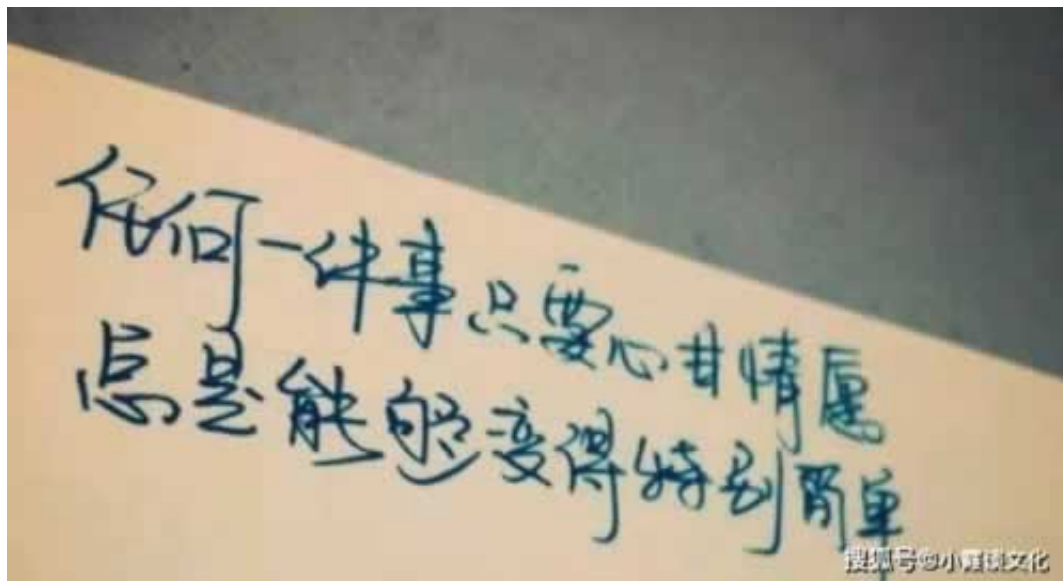 任何一件事只要心甘情愿
总是能够变得特别简单
搜狐号@小霞读文化